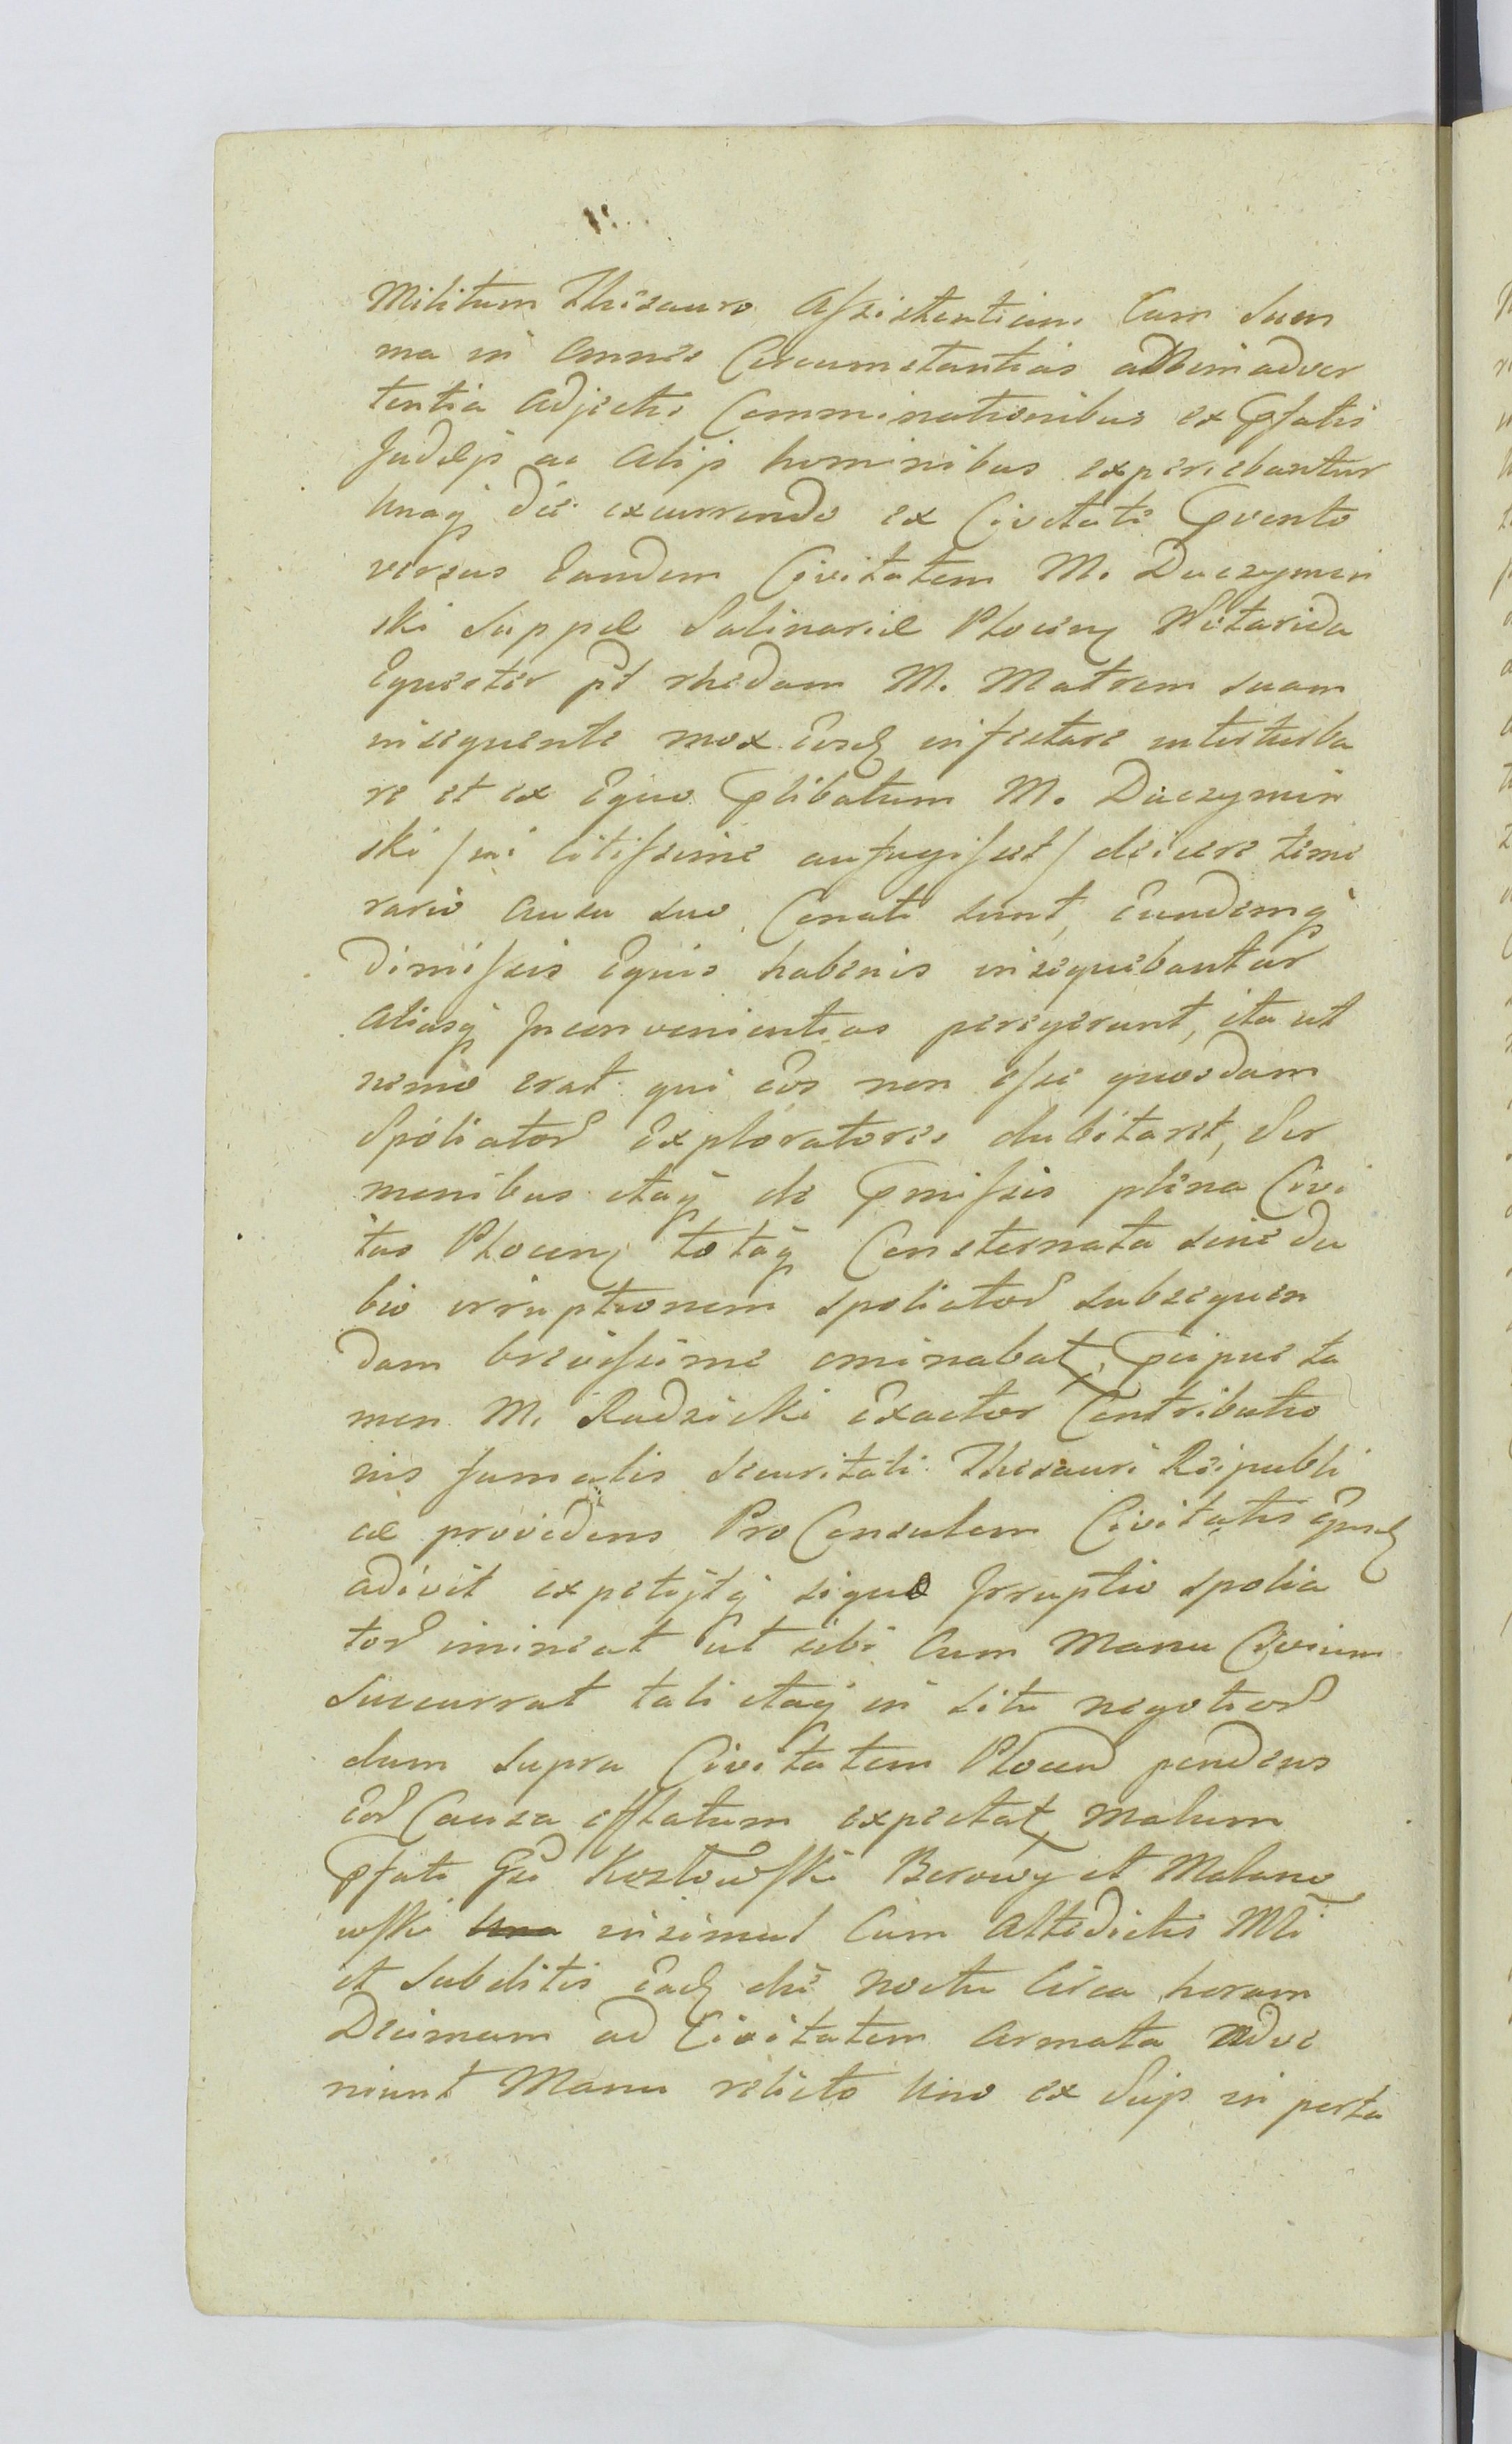 Militum Thesauro Assistentium Cum Sum
ma in Omnes Circumstantias adnimadver
tentia Adjectis Comminationibus ex Pfatis
Judæis ac Alijs hominibus experiebantur
Unaq die excurrendo ex Civitate
versus Eandem Civitatem M. Duczymin
ski Suppæ Salinariæ Plocen Notarida
Equester rhedam M. Matrem suam
insequente mox infestare interturba
re et ex Equo Plibatum M. Duczymin
ski /ni citissime aufugisset/ deicere teme
rario Ausu suo Conati sunt, Eundemq
Dimissis Equis habenis insequebantur
Aliasq Inconvenientias peregerunt, ita ut
nemo erat qui Eos non esse quosdam
Spoliator Exploratores dubitaret, Ser
monibus itaq de Pmissis plena Civi
tas Plocen totaq Consternata sine du
bio irruptionem spoliator subsequen
dam brevissime ominabat, Pcipue ta
men M. Radzicki Exactor Contributio
nis fumalis securitati Thesauri Reipubli
cæ providens Pro Consulem Civitatis
adivit expetijtq siquæ Irruptio spolia
tor imineat ut sibi Cum Manu Civium
Succurrat tali itaq in situ negotior
dum supra Civitatem Plocen pendens
Causa efflatum expectat Malum
Pfati Gsi Kozłowski Berowy et Malano
wski Una insimul Cum Altedictis Mli
et Subditis Ead die noctu Circa horam
Decimam ad Civitatem Armata adve
niunt Manu relicto Uno ex Suis in porta